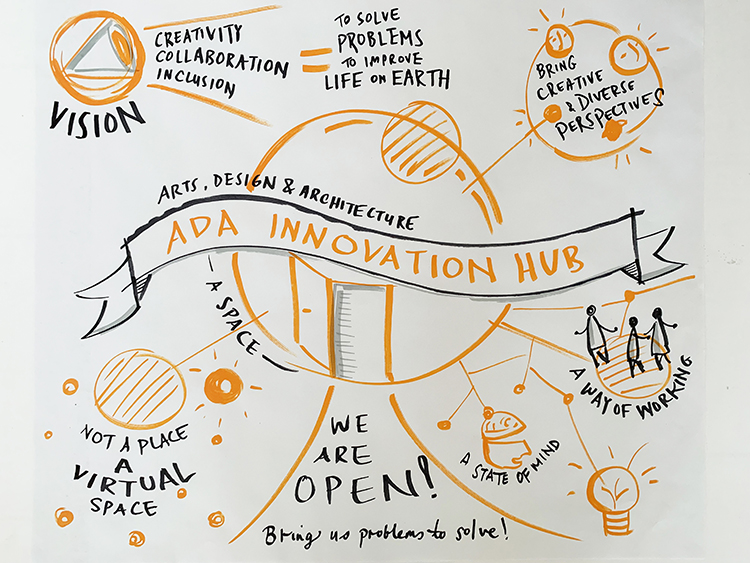 CREATIVITY
COLLABORATION
INCLUSION
VISION
TO SOLVE
PROBLEMS
TO IMPROVE
LIFE ON EARTH
BRING
CREATIVE
& DIVERSE
PERSPECTIVES
ARTS, DESIGN & ARCHITECTURE
ADA INNOVATION HUB
A SPACE
NOT A PLACE
A
VIRTUAL
SPACE
WE
ARE
OPEN!
Bring us problems to solve!
A STATE OF MIND
A WAY OF WORKING